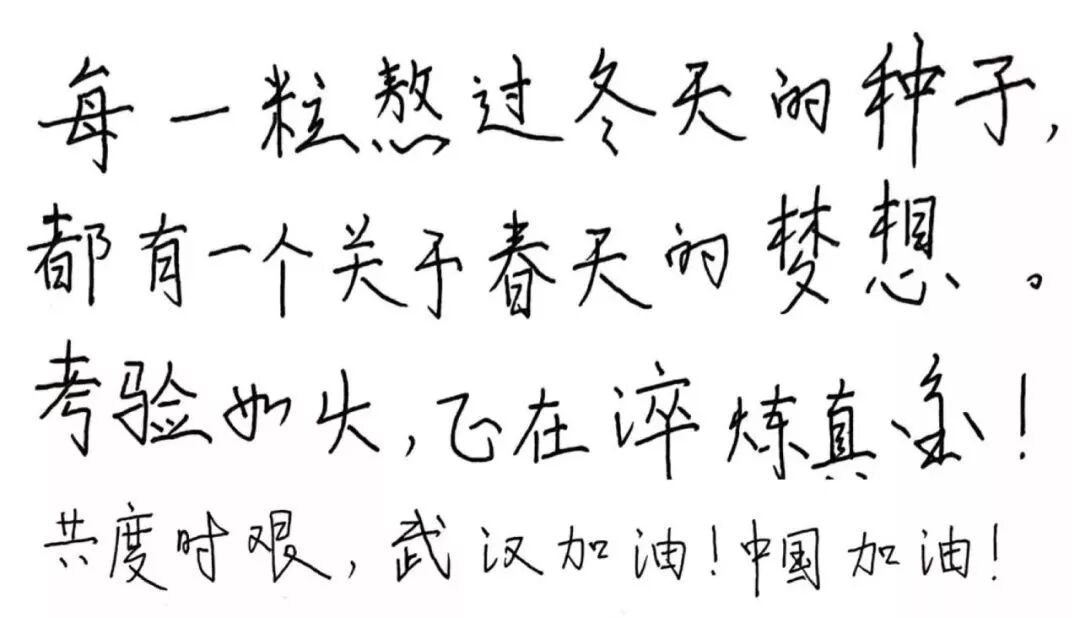 每一粒熬过冬天的种子,
都有一个关于春天的梦想。
考验如火,正在淬炼真金!
共度时艰,武汉加油!中国加油!